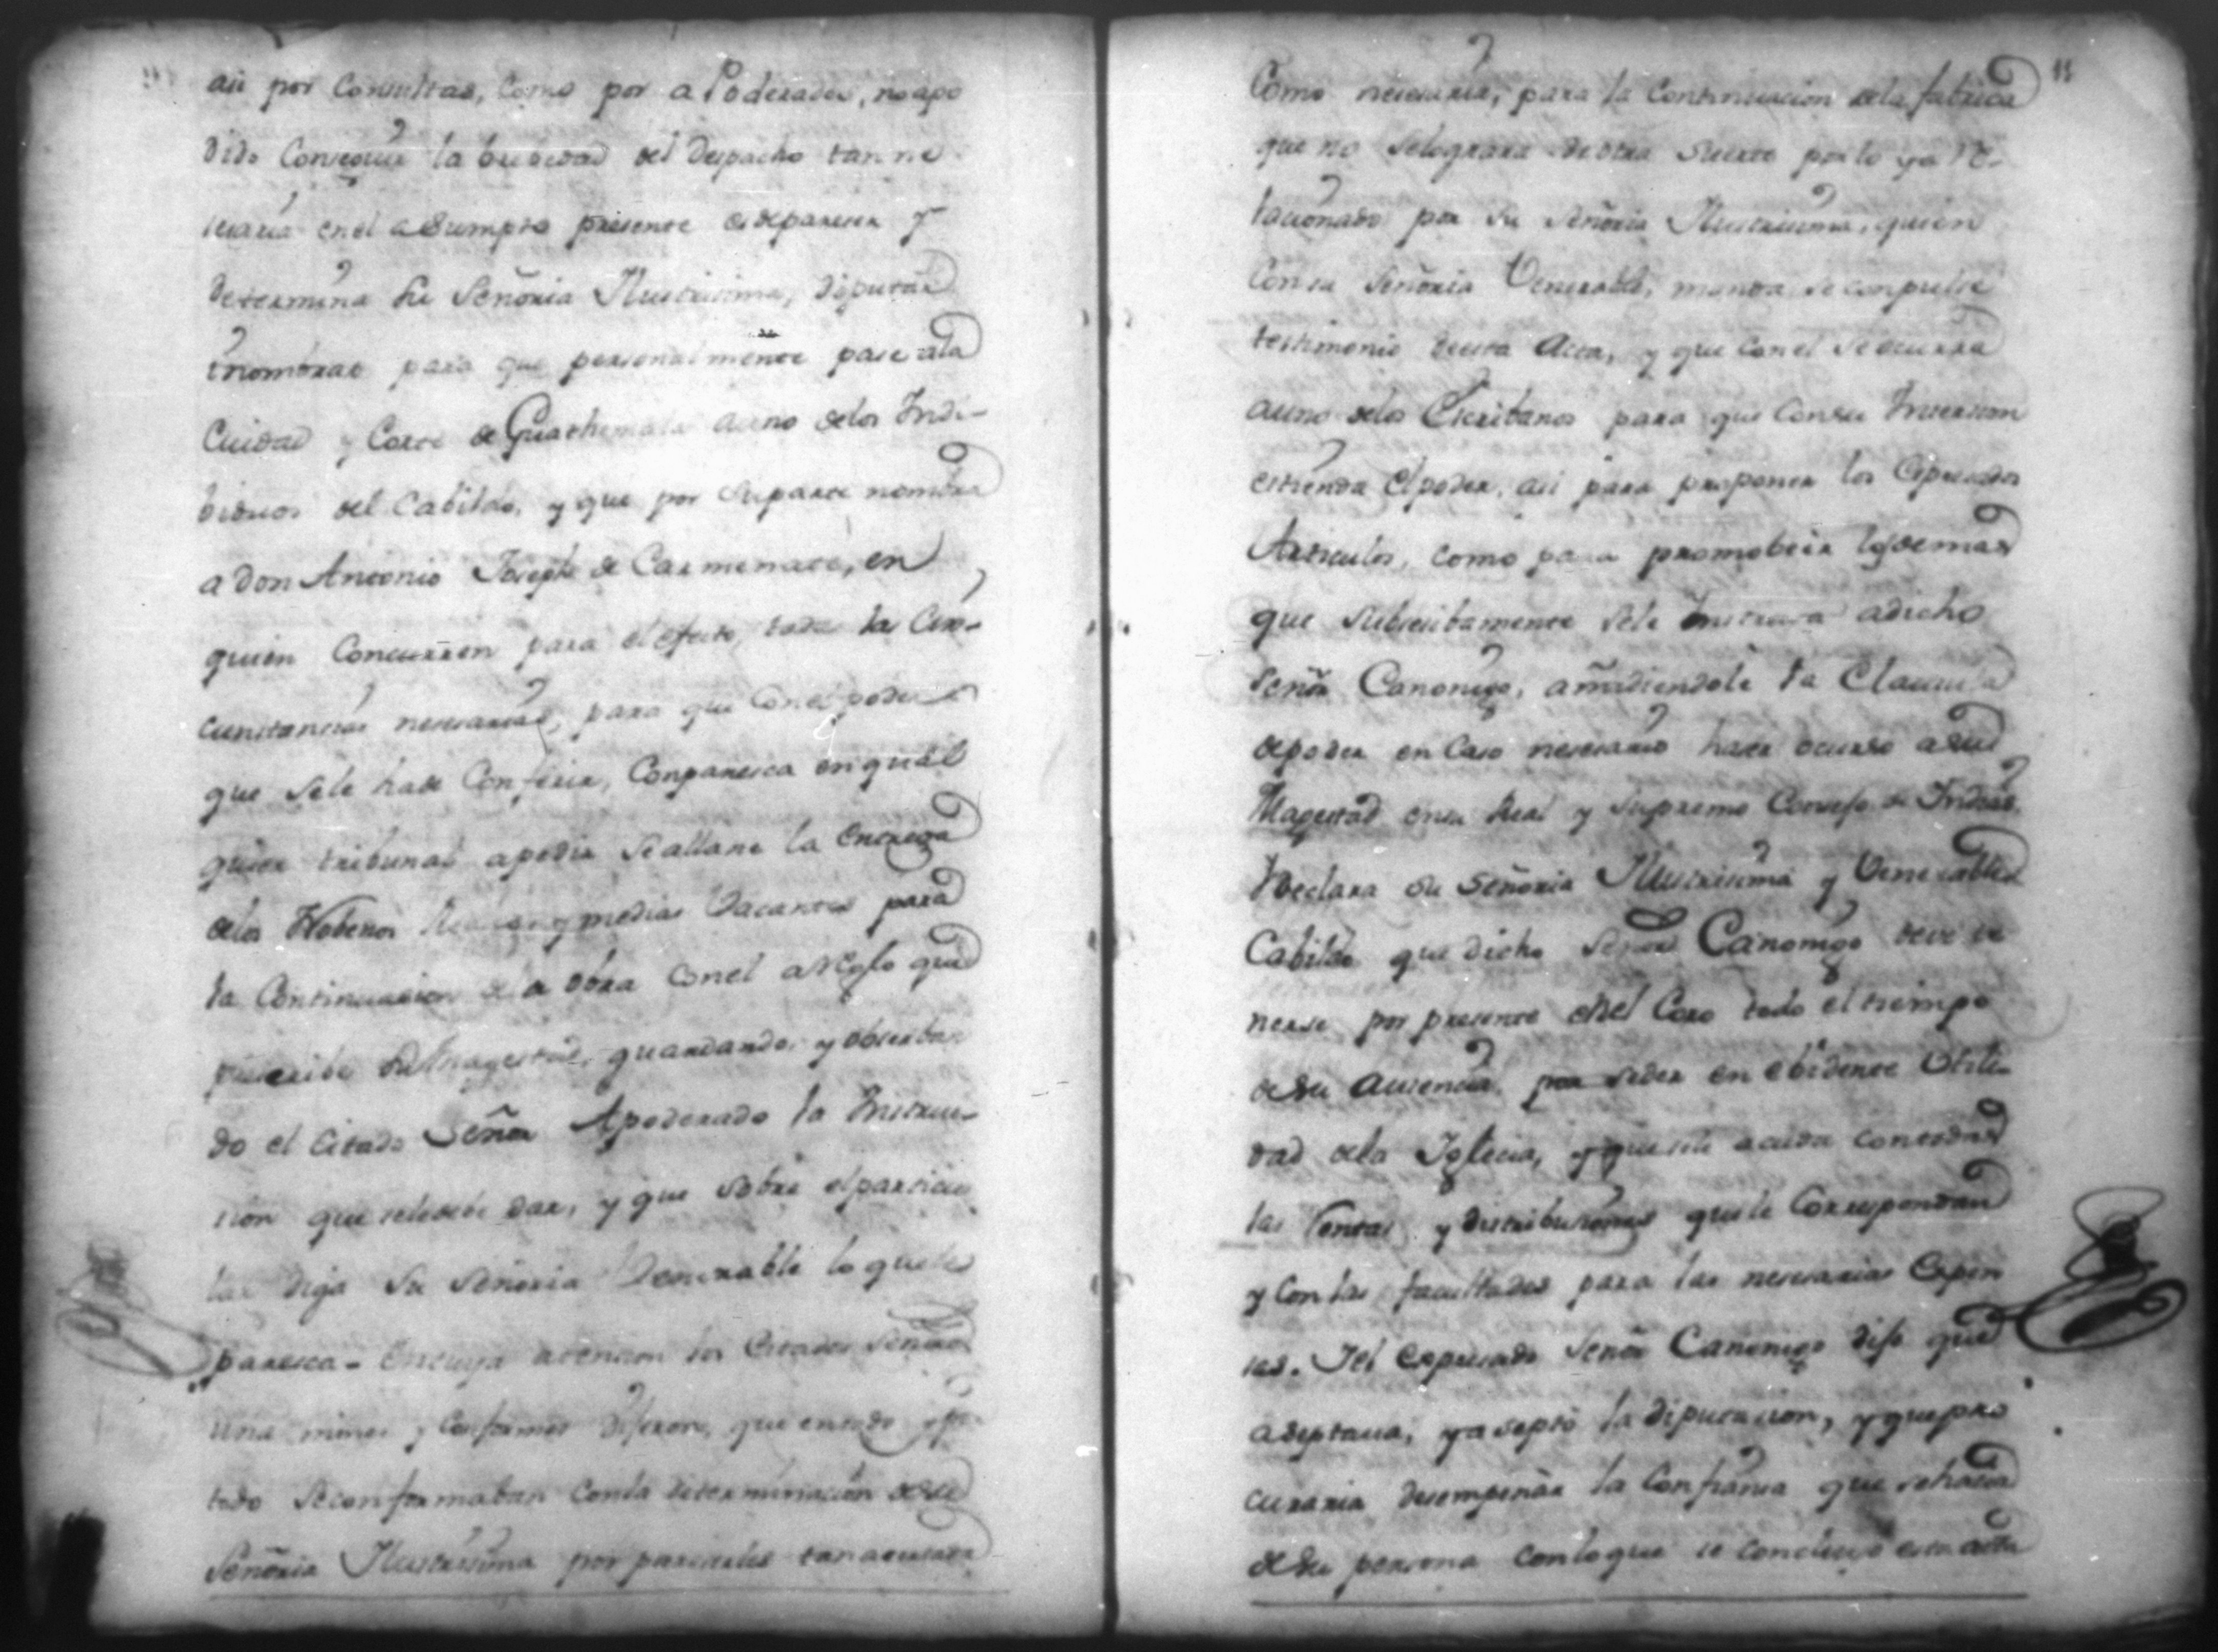 asi por Consultas, Como por aPoderados, noapo
dido Conseguir la brebedad del Despacho tan ne
sesaria en el aSumpto presente es deparecer y
determina Su Señoria Ilustrisima, diputar
inombrar para que personalmente pase ala
Cuidad y Corte de Guathemala auno delos Indi-
biduos del Cabildo, y que por Suparte nombra
a Don Antonio Joseph de Carmenate, en
quien Concurren para el efecto, toda las Cir-
cunstancias nesesarias, para que Con el poder
que Sele hade Conferir, Conparesca en qual
quier tribunal apedir Seallane la Entrega
delos Nobenos Reales y medias Vacantes para
la Continuacion de la obra Con el areglo que
prescribe SuMagestad, guardando, y obserban
do el Citado Señor Apoderado la Instruc-
sion que seledebe dar, y que Sobre elparticu
lar diga Su Señoria Venerable lo queles
paresca - Encuya atencion los Citados Señores
una nimes y Conformes dijeron, que entodo y por
todo Seconformaban Conla determinacion desu
Señoria Ilustrisima por parecerles tan acertada
11
Como nesesaria, para la Continuacion dela fabrica
que no Selograra deotra Suerte por lo ya re-
lacionado por Su Señoria Ilustrisima, quien
Consu Señoria Venerable, manda seconpulse
testimonio deesta Acta, y que Con el Seocurra
auno delos Escribanos para que Consu Insersion
estienda Elpoder, asi para proponer los Expresados
Articulos, como para promober losdemas
que Subsesibamente Sele Instruira adicho
Señor Canonigo, añadiendole la Clausula
depoder en Caso nesesario haser ocurso asu
Magestad ensu Real y Supremo Consejo de Indias.
Declara Su Señoria Ilustrisima y Venerable
Cabildo que dicho Señor Canonigo deve te
nerse por presente enel Coro todo el tiempo
desu Ausencia, por seder en ebidente Utili-
dad dela Iglesia, y quesele acuda contodas
las Rentas y distribusiones quele Correspondan
y Con las facultades para las nesesarias Expen
sas. Yel Expresado Señor Canonigo dijo que
aseptava, yaseptó la diputacion, y quepro
curaria desempeñar la Confiansa que sehacia
desu persona conloque se concluyó esta acta